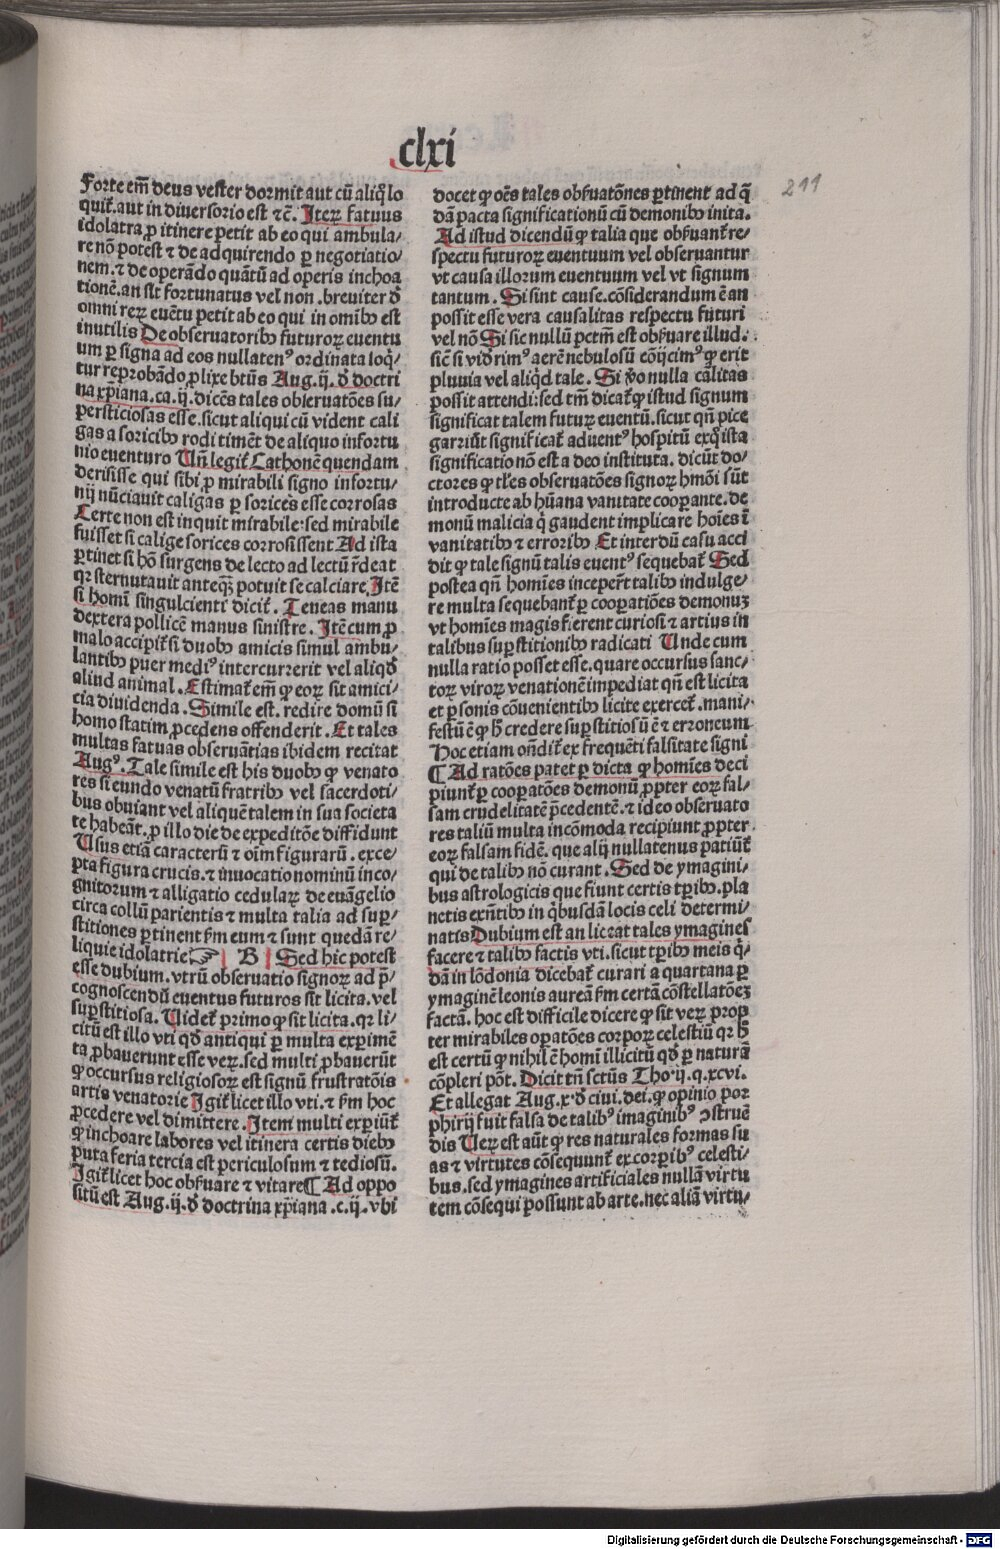 clxi
211
Forte em̄ deus vester dormit aut cū aliq̇ lo
quit᷑.aut in diuersorio est ⁊ c̄. Iteꝝ fatuus
idolatra ꝓ itinere petit ab eo qui ambula/
re nō potest ⁊ de adquirendo ꝑ negotiatio/
nem.⁊ de operādo quātū ad operis inchoa
tionē.an sit fortunatus vel non.breuiter ḋ
omni reꝝ euētu petit ab eo qui in omībꝫ est
inutilis De obseruatoribꝫ futuroꝝ euentu
um ꝑ signa ad eos nullatenꝰ ordinata loq̇/
tur reprobādo ꝓlixe btūs Aug.ij.ḋ doctri
na xp̄iana.ca.ij.dicēs tales obseruatōes su/
persticiosas esse.sicut aliqui cū vident cali
gas a soricibꝫ rodi timēt de aliquo infortu
nio euenturo Uñ legit᷑ Cathonē quendam
derisisse qui sibi ꝓ mirabili signo infortu/
nij nūciauit caligas ꝑ sorices esse corrosas
Certe non est inquit mirabile:sed mirabile
fuisset si calige sorices corrosissent Ad ista
ꝑtinet si hō surgens de lecto ad lectū r̄deat
qꝛ sternutauit anteqꝫ potuit se calciare Itē
si homī singulcienti dicit᷑. Teneas manu
dextera pollicē manus sinistre. Itē cum ꝓ
malo accipit᷑ si duobꝫ amicis simul ambu/
lantibꝫ puer mediꝰ intercurrerit vel aliqḋ
aliud animal. Estimat᷑ em̄ ꝙ eoꝝ sit amici/
cia diuidenda. Simile est. redire domū si
homo statim ꝓcedens offenderit. Et tales
multas fatuas obseruātias ibidem recitat
Augꝰ. Tale simile est his duobꝫ ꝙ venato
res si eundo venatū fratribꝫ vel sacerdoti/
bus obuiant vel aliquē talem in sua societa
te habeāt.ꝓ illo die de expeditōe diffidunt
Usus etiā caracterū ⁊ oīm figurarū. exce/
pta figura crucis.⁊ inuocatio nominū inco/
gnitorum ⁊ alligatio cedulaꝝ de euāgelio
circa collū parientis ⁊ multa talia ad suꝑ/
stitiones ꝑtinent ẜm eum ⁊ sunt quedā re/
liquie idolatrie ☞ B Sed hic potest
esse dubium. vtrū obseruatio signoꝝ ad p̄/
cognoscendū euentus futuros sit licita. vel
suꝑstitiosa. Uidet᷑ primo ꝙ sit licita. qꝛ li/
citū est illo vti qḋ antiqui ꝑ multa exꝑimē
ta ꝓbauerunt esse veꝝ.sed multi ꝓbauerūt
ꝙ occursus religiosoꝝ est signū frustratōis
artis venatorie Igit᷑ licet illo vti.⁊ ẜm hoc
ꝓcedere vel dimittere. Item multi exꝑiūt᷑
ꝙ inchoare labores vel itinera certis diebꝫ
puta feria tercia est periculosum ⁊ tediosū.
Igit᷑ licet hoc obẜuare ⁊ vitare ¶ Ad oppo
situ est Aug.ij.ḋ doctrina xp̄iana.c.ij.vbi
docet ꝙ oēs tales obẜuatōnes ꝑtinent ad q̄
dā pacta significationū cū demonibꝫ inita.
Ad istud dicendū ꝙ talia que obẜuant᷑ re/
spectu futuroꝝ euentuum vel obseruantur
vt causa illorum euentuum vel vt signum
tantum. Si sint cause.cōsiderandum ē an
possit esse vera causalitas respectu futuri
vel nō Si sic nullū pctm̄ est obẜuare illud.
sic̄ si viḋrimꝰ aerē nebulosū cōijcimꝰ ꝙ erit
pluuia vel aliqḋ tale. Si v̇o nulla cālitas
possit attendi:sed tm̄ dicat᷑ ꝙ istud signum
significat talem futuꝝ euentū.sicut qñ pice
garriūt significat᷑ aduentꝰ hospitū exq̇ ista
significatio nō est a deo instituta. dicūt do/
ctores ꝙ tl̄es obseruatōes signoꝝ hmōi sūt
introducte ab hūana vanitate cooꝑante.de
monū malicia q̇ gaudent implicare hoīes ī
vanitatibꝫ ⁊ erroribꝫ Et interdū casu acci
dit ꝙ tale signū talis euentꝰ sequebat᷑ Sed
postea qñ homīes inceper̄t talibꝫ indulge/
re multa sequebant᷑ ꝑ cooꝑatiōes demonuꝫ
vt homīes magis fierent curiosi ⁊ artius in
talibus suꝑstitionibꝫ radicati Unde cum
nulla ratio posset esse.quare occursus sanc/
toꝝ viroꝝ venationē impediat qñ est licita
et ꝑsonis cōuenientibꝫ licite exercet᷑.mani/
festū ē ꝙ h̄ credere suꝑstitiosū ē ⁊ erroneum
Hoc etiam oñdit᷑ ex frequēti falsitate signi
¶ Ad ratōes patet ꝑ dicta ꝙ homīes deci
piunt᷑ ꝑ cooꝑatōes demonū ꝓpter eoꝝ fal/
sam crudelitatē p̄cedentē.⁊ ideo obseruato
res taliū multa incōmoda recipiunt ꝓpter
eoꝝ falsam fidē. que alij nullatenus patiūt᷑
qui de talibꝫ nō curant. Sed de ymagini/
bus astrologicis que fiunt certis tꝑibꝫ.pla
netis exñtibꝫ in q̇busdā locis celi determi/
natis Dubium est an liceat tales ymagines
facere ⁊ talibꝫ factis vti.sicut tꝑibꝫ meis q̇/
dā in lōdonia dicebat᷑ curari a quartana ꝑ
ymaginē leonis aureā ẜm certā cōstellatōeꝫ
factā. hoc est difficile dicere ꝙ sit veꝝ prop
ter mirabiles oꝑatōes corpoꝝ celestiū qꝛ h̄
est certū ꝙ nihil ē homī illicitū qḋ ꝑ naturā
cōpleri pōt. Dicit tñ sctūs Tho.ij.q.xcvi.
Et allegat Aug.x.ḋ ciui.dei.ꝙ opinio por
phirij fuit falsa de talibꝰ imaginibꝰ ↄstruē
dis Ueꝝ est aūt ꝙ res naturales formas su
as ⁊ virtutes cōsequunt᷑ ex corꝑibꝰ celesti/
bus.sed ymagines artificiales nullā virtu
tem cōsequi possunt ab arte.nec aliā virtu/
Digitalisierung gefördert durch die Deutsche Forschungsgemeinschaft - DFG